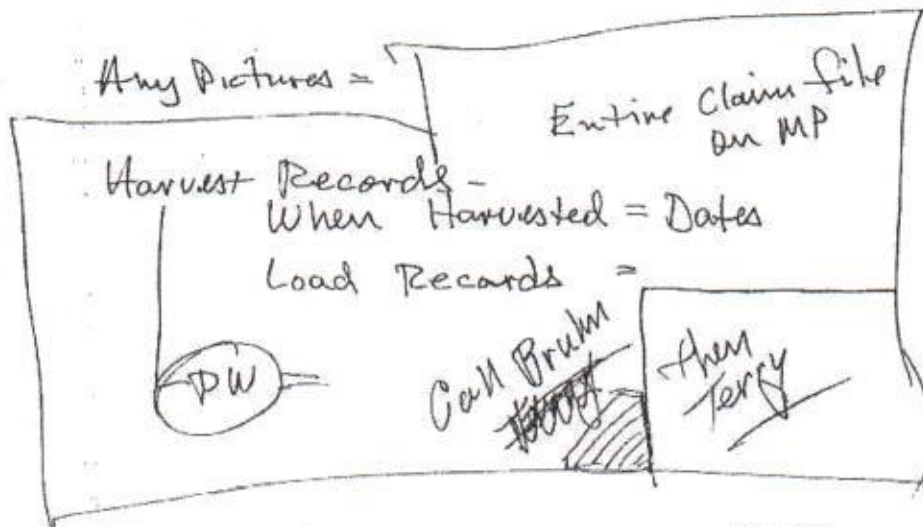 Any Pictures =
Entire Claim file
on MP
Harvest Records -
When Harvested = Dates
Load Records =
DW
Call Bruhn
then
Terry